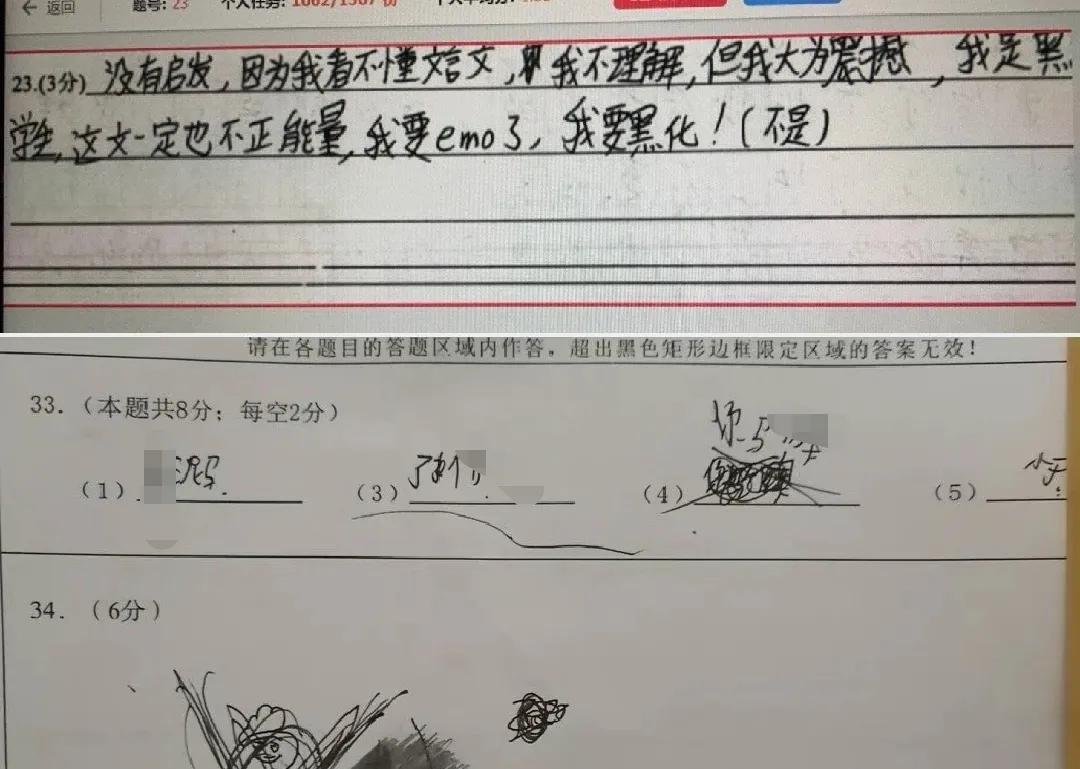 ← 返回 题号: 23
23.(3分) 没有启发，因为我看不懂文言文，我不理解，但我大为震撼，我是黑
学生，这文一定也不正能量，我要emo了，我要黑化！(不是)
请在各题目的答题区域内作答，超出黑色矩形边框限定区域的答案无效！
33.（本题共8分；每空2分）
（1） （3） （4） （5）
34.（6分）